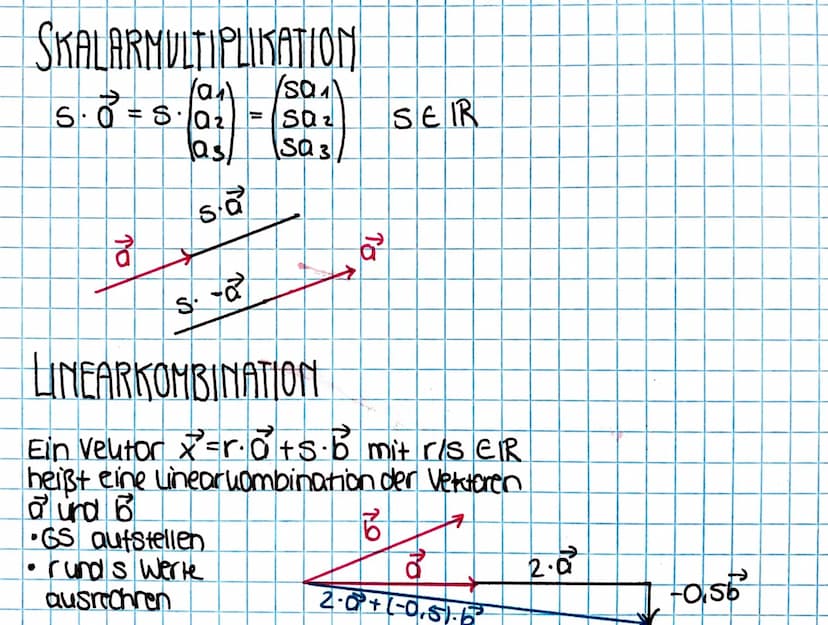 SKALARMULTIPLIKATION
s · a⃗ = s · (a1 a2 a3) = (sa1 sa2 sa3) s ∈ ℝ
s · a⃗
a⃗
a⃗
s · -a⃗
LINEARKOMBINATION
Ein Vektor x⃗ = r · a⃗ + s · b⃗ mit r/s ∈ ℝ
heißt eine Linearkombination der Vektoren
a⃗ und b⃗
• GS aufstellen
• r und s Werte
ausrechnen
b⃗
a⃗
2 · a⃗
-0,5b⃗
2 · a⃗ + (-0,5) · b⃗